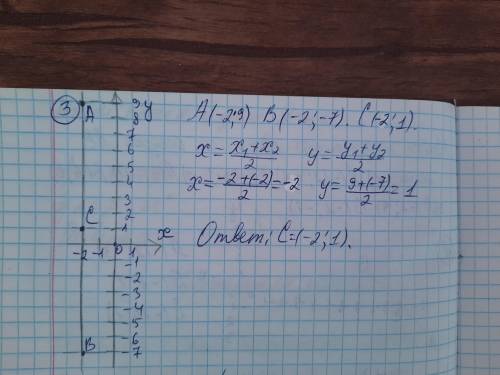 3
A(-2;9) B(-2;-7). C(-2;1).
x = x₁+x₂/2 y = y₁+y₂/2
x = -2+(-2)/2 = -2 y = 9+(-7)/2 = 1
Ответ: C=(-2;1).
9 y
A 8
7
6
5
4
3
2
C 1
x
-2 -1 0 1
-1
-2
-3
-4
-5
-6
B -7